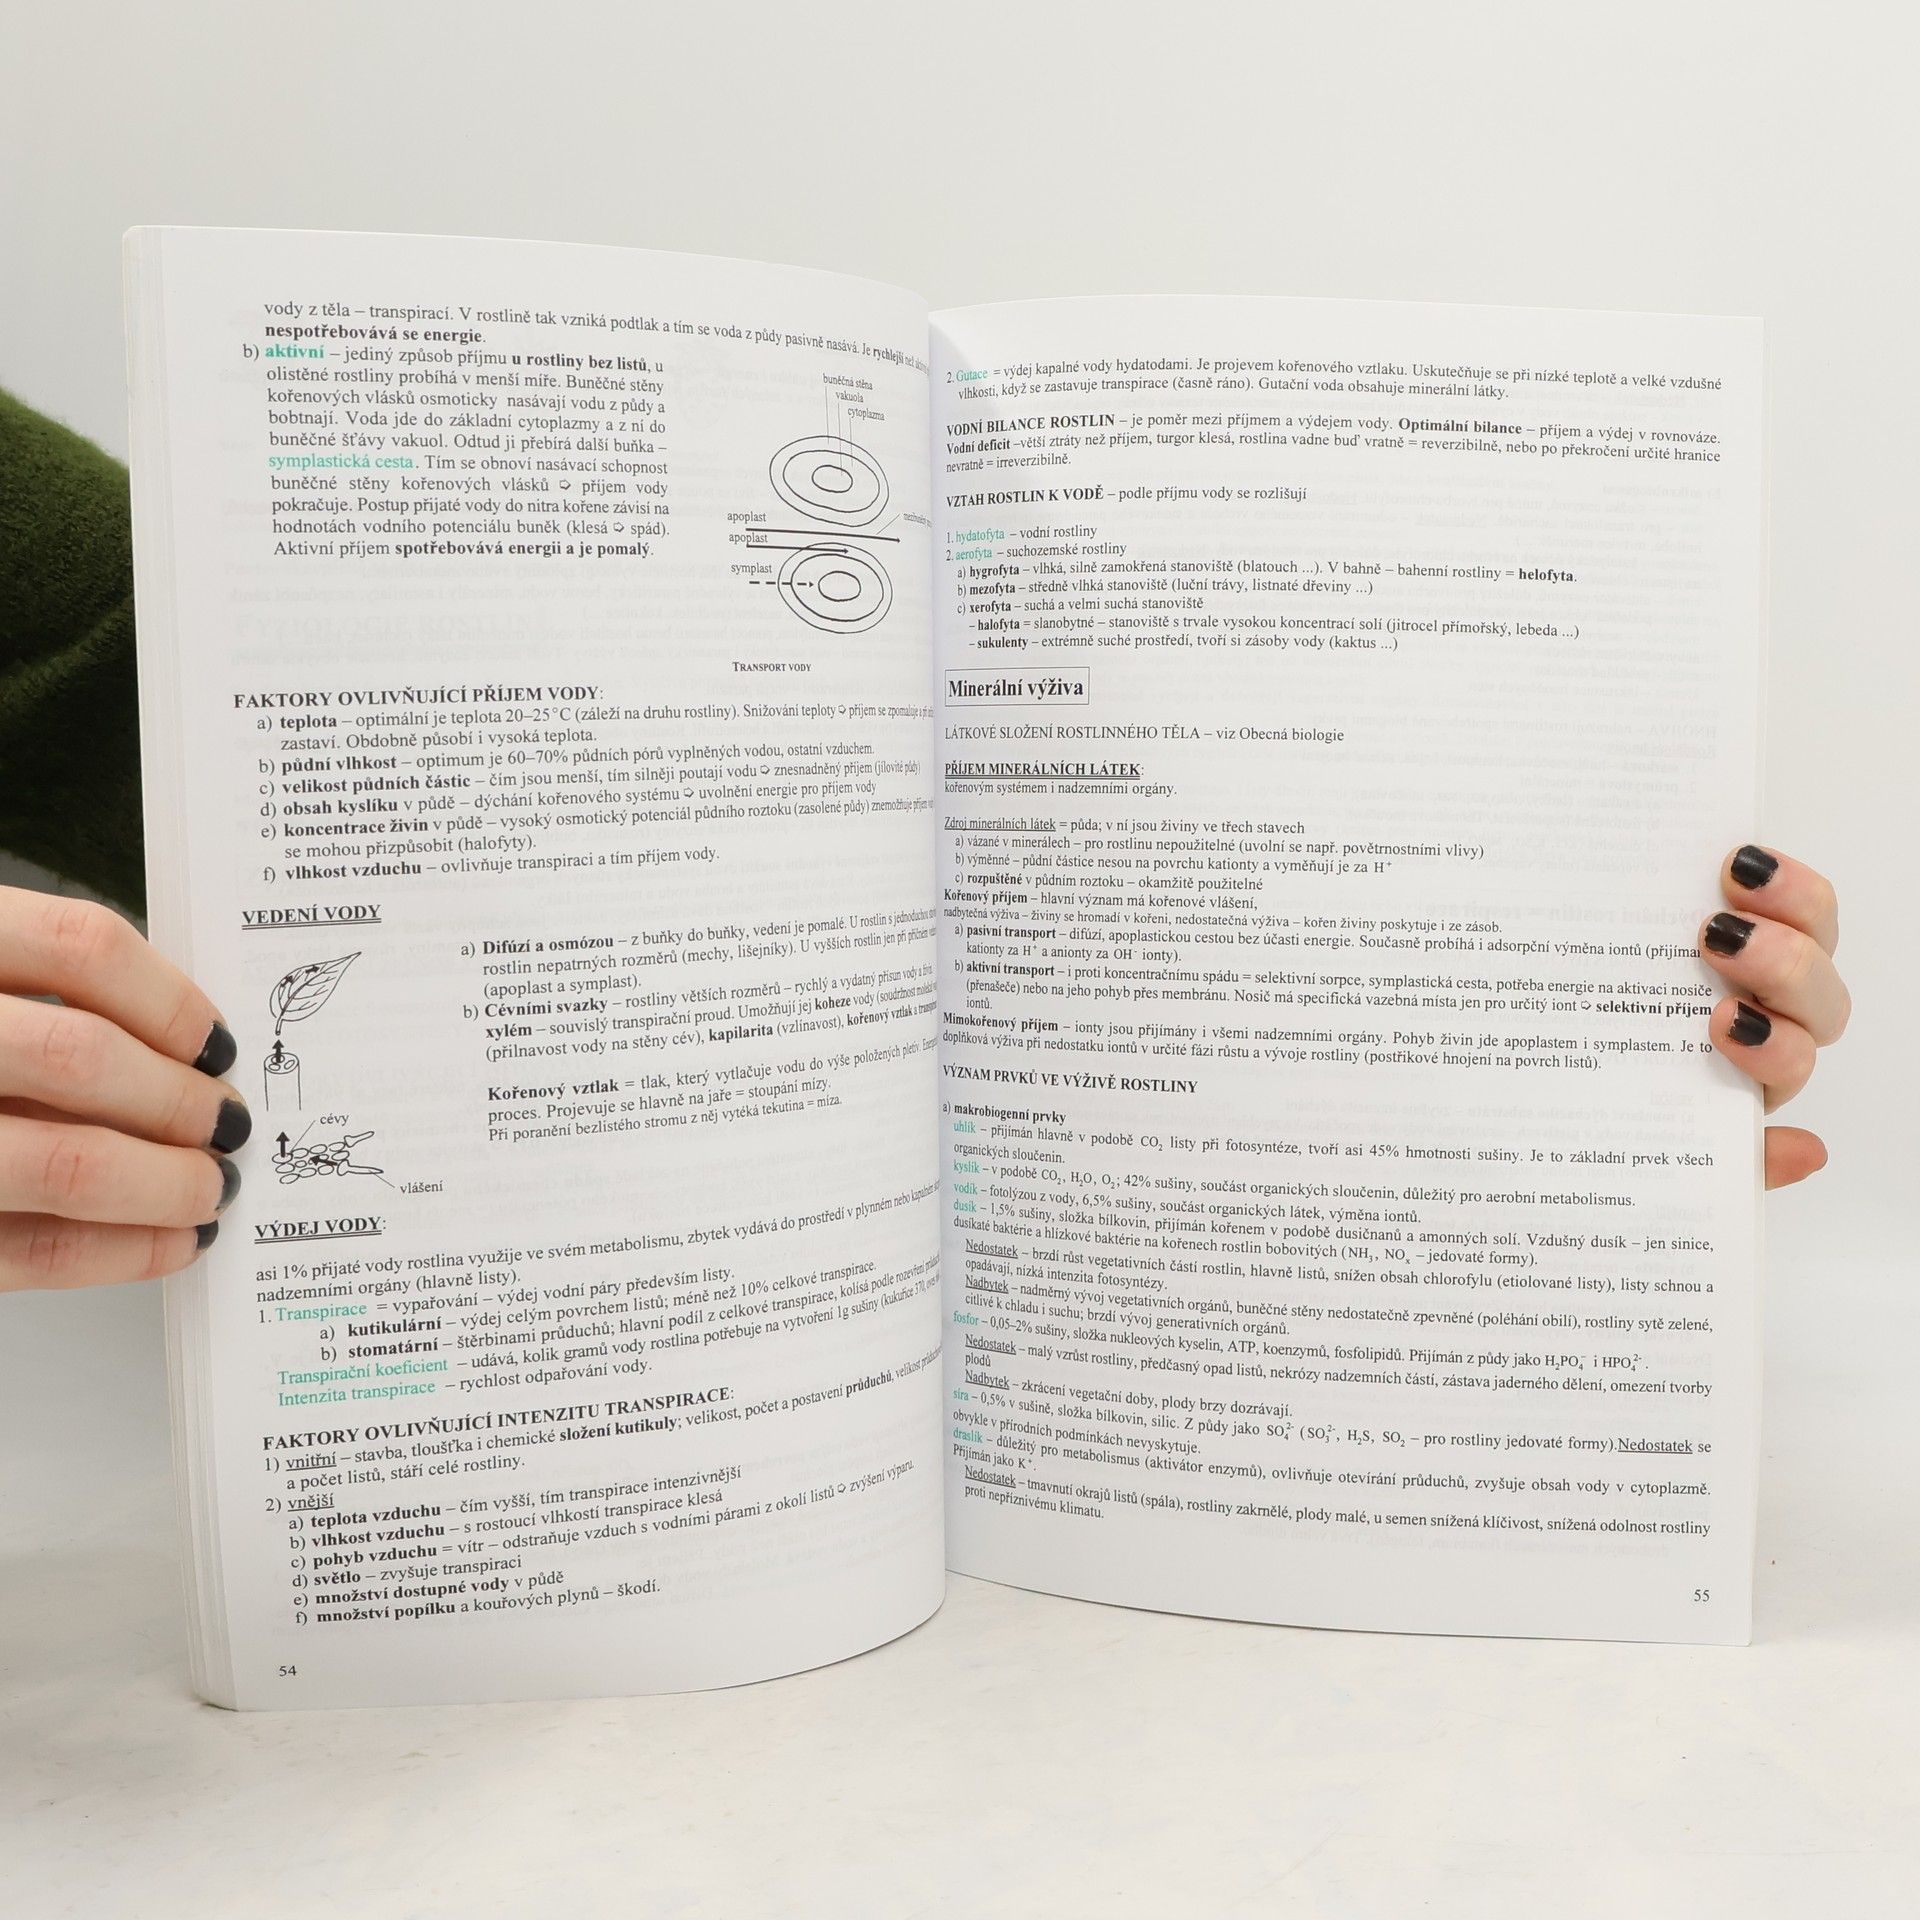 vody z těla – transpirací. V rostlině tak vzniká podtlak a tím se voda z půdy pasivně nasává. Je rychlejší než
nespotřebovává se energie.
b) aktivní – jediný způsob příjmu u rostliny bez listů, u
olistěné rostliny probíhá v menší míře. Buněčné stěny
kořenových vlásků osmoticky nasávají vodu z půdy a
bobtnají. Voda jde do základní cytoplazmy a z ní do
buněčné šťávy vakuol. Odtud ji přebírá další buňka –
symplastická cesta. Tím se obnoví nasávací schopnost
buněčné stěny kořenových vlásků ➪ příjem vody
pokračuje. Postup přijaté vody do nitra kořene závisí na
hodnotách vodního potenciálu buněk (klesá ➪ spád).
Aktivní příjem spotřebovává energii a je pomalý.
buněčná stěna
vakuola
cytoplazma
apoplast
apoplast
symplast
TRANSPORT VODY
FAKTORY OVLIVŇUJÍCÍ PŘÍJEM VODY:
a) teplota – optimální je teplota 20–25°C (záleží na druhu rostliny). Snižování teploty ➪ příjem se zpomaluje
zastaví. Obdobně působí i vysoká teplota.
b) půdní vlhkost – optimum je 60–70% půdních pórů vyplněných vodou, ostatní vzduchem.
c) velikost půdních částic – čím jsou menší, tím silněji poutají vodu ➪ znesnadněný příjem (jílovité půdy)
d) obsah kyslíku v půdě – dýchání kořenového systému ➪ uvolnění energie pro příjem vody
e) koncentrace živin v půdě – vysoký osmotický potenciál půdního roztoku (zasolené půdy) znemožňuje příjem
se mohou přizpůsobit (halofyty).
f) vlhkost vzduchu – ovlivňuje transpiraci a tím příjem vody.
VEDENÍ VODY
a) Difúzí a osmózou – z buňky do buňky, vedení je pomalé. U rostlin s jednoduchou
rostlin nepatrných rozměrů (mechy, lišejníky). U vyšších rostlin jen při příčném
(apoplast a symplast).
b) Cévními svazky – rostliny větších rozměrů – rychlý a vydatný přísun vody a živin
xylém – souvislý transpirační proud. Umožňují jej koheze vody (soudržnost
(přilnavost vody na stěny cév), kapilarita (vzlínavost), kořenový vztlak a
Kořenový vztlak = tlak, který vytlačuje vodu do výše položených pletiv.
proces. Projevuje se hlavně na jaře = stoupání mízy.
Při poranění bezlistého stromu z něj vytéká tekutina = míza.
cévy
vlášení
VÝDEJ VODY:
asi 1% přijaté vody rostlina využije ve svém metabolismu, zbytek vydává do prostředí v plynném nebo kapalném
nadzemními orgány (hlavně listy).
1. Transpirace = vypařování – výdej vodní páry především listy.
a) kutikulární – výdej celým povrchem listů; méně než 10% celkové transpirace.
b) stomatární – štěrbinami průduchů; hlavní podíl z celkové transpirace, kolísá podle rozevření
Transpirační koeficient – udává, kolik gramů vody rostlina potřebuje na vytvoření 1g sušiny (kukuřice 370,
Intenzita transpirace – rychlost odpařování vody.
FAKTORY OVLIVŇUJÍCÍ INTENZITU TRANSPIRACE:
1) vnitřní – stavba, tloušťka i chemické složení kutikuly; velikost, počet a postavení průduchů, velikost
a počet listů, stáří celé rostliny.
2) vnější
a) teplota vzduchu – čím vyšší, tím transpirace intenzivnější
b) vlhkost vzduchu – s rostoucí vlhkostí transpirace klesá
c) pohyb vzduchu = vítr – odstraňuje vzduch s vodními párami z okolí listů ➪ zvýšení výparu.
d) světlo – zvyšuje transpiraci
e) množství dostupné vody v půdě
f) množství popílku a kouřových plynů – škodí.
54
2. Gutace = výdej kapalné vody hydatodami. Je projevem kořenového vztlaku. Uskutečňuje se při nízké teplotě a velké vzdušné
vlhkosti, když se zastavuje transpirace (časně ráno). Gutační voda obsahuje minerální látky.
VODNÍ BILANCE ROSTLIN – je poměr mezi příjmem a výdejem vody. Optimální bilance – příjem a výdej v rovnováze.
Vodní deficit –větší ztráty než příjem, turgor klesá, rostlina vadne buď vratně = reverzibilně, nebo po překročení určité hranice
nevratně = irreverzibilně.
VZTAH ROSTLIN K VODĚ – podle příjmu vody se rozlišují
1. hydatofyta – vodní rostliny
2. aerofyta – suchozemské rostliny
a) hygrofyta – vlhká, silně zamokřená stanoviště (blatouch ...). V bahně – bahenní rostliny = helofyta.
b) mezofyta – středně vlhká stanoviště (luční trávy, listnaté dřeviny ...)
c) xerofyta – suchá a velmi suchá stanoviště
– halofyta = slanobytné – stanoviště s trvale vysokou koncentrací solí (jitrocel přímořský, lebeda ...)
– sukulenty – extrémně suché prostředí, tvoří si zásoby vody (kaktus ...)
Minerální výživa
LÁTKOVÉ SLOŽENÍ ROSTLINNÉHO TĚLA – viz Obecná biologie
PŘÍJEM MINERÁLNÍCH LÁTEK:
kořenovým systémem i nadzemními orgány.
Zdroj minerálních látek = půda; v ní jsou živiny ve třech stavech
a) vázané v minerálech – pro rostlinu nepoužitelné (uvolní se např. povětrnostními vlivy)
b) výměnné – půdní částice nesou na povrchu kationty a vyměňují je za H⁺
c) rozpuštěné v půdním roztoku – okamžitě použitelné
Kořenový příjem – hlavní význam má kořenové vlášení,
nadbytečná výživa – živiny se hromadí v kořeni, nedostatečná výživa – kořen živiny poskytuje i ze zásob.
a) pasivní transport – difúzí, apoplastickou cestou bez účasti energie. Současně probíhá i adsorpční výměna iontů (přijíma
kationty za H⁺ a anionty za OH⁻ ionty).
b) aktivní transport – i proti koncentračnímu spádu = selektivní sorpce, symplastická cesta, potřeba energie na aktivaci nosiče
(přenašeče) nebo na jeho pohyb přes membránu. Nosič má specifická vazebná místa jen pro určitý iont ➪ selektivní příjem
iontů.
Mimokořenový příjem – ionty jsou přijímány i všemi nadzemními orgány. Pohyb živin jde apoplastem i symplastem. Je to
doplňková výživa při nedostatku iontů v určité fázi růstu a vývoje rostliny (postřikové hnojení na povrch listů).
VÝZNAM PRVKŮ VE VÝŽIVĚ ROSTLINY
a) makrobiogenní prvky
uhlík – přijímán hlavně v podobě CO₂ listy při fotosyntéze, tvoří asi 45% hmotnosti sušiny. Je to základní prvek všech
organických sloučenin.
kyslík – v podobě CO₂, H₂O, O₂; 42% sušiny, součást organických sloučenin, důležitý pro aerobní metabolismus.
vodík – fotolýzou z vody, 6,5% sušiny, součást organických látek, výměna iontů.
dusík – 1,5% sušiny, složka bílkovin, přijímán kořenem v podobě dusičnanů a amonných solí. Vzdušný dusík – jen sinice,
dusíkaté baktérie a hlízkové baktérie na kořenech rostlin bobovitých (NH₃, NOₓ – jedovaté formy).
Nedostatek – brzdí růst vegetativních částí rostlin, hlavně listů, snížen obsah chlorofylu (etiolované listy), listy schnou a
opadávají, nízká intenzita fotosyntézy.
Nadbytek – nadměrný vývoj vegetativních orgánů, buněčné stěny nedostatečně zpevněné (poléhání obilí), rostliny sytě zelené,
citlivé k chladu i suchu; brzdí vývoj generativních orgánů.
fosfor – 0,05–2% sušiny, složka nukleových kyselin, ATP, koenzymů, fosfolipidů. Přijímán z půdy jako H₂PO₄⁻ i HPO₄²⁻.
Nedostatek – malý vzrůst rostliny, předčasný opad listů, nekrózy nadzemních částí, zástava jaderného dělení, omezení tvorby
plodů
Nadbytek – zkrácení vegetační doby, plody brzy dozrávají.
síra – 0,5% v sušině, složka bílkovin, silic. Z půdy jako SO₄²⁻ (SO₃²⁻, H₂S, SO₂ – pro rostliny jedovaté formy).Nedostatek se
obvykle v přírodních podmínkách nevyskytuje.
draslík – důležitý pro metabolismus (aktivátor enzymů), ovlivňuje otevírání průduchů, zvyšuje obsah vody v cytoplazmě.
Přijímán jako K⁺.
Nedostatek – tmavnutí okrajů listů (spála), rostliny zakrnělé, plody malé, u semen snížená klíčivost, snížená odolnost rostliny
proti nepříznivému klimatu.
55